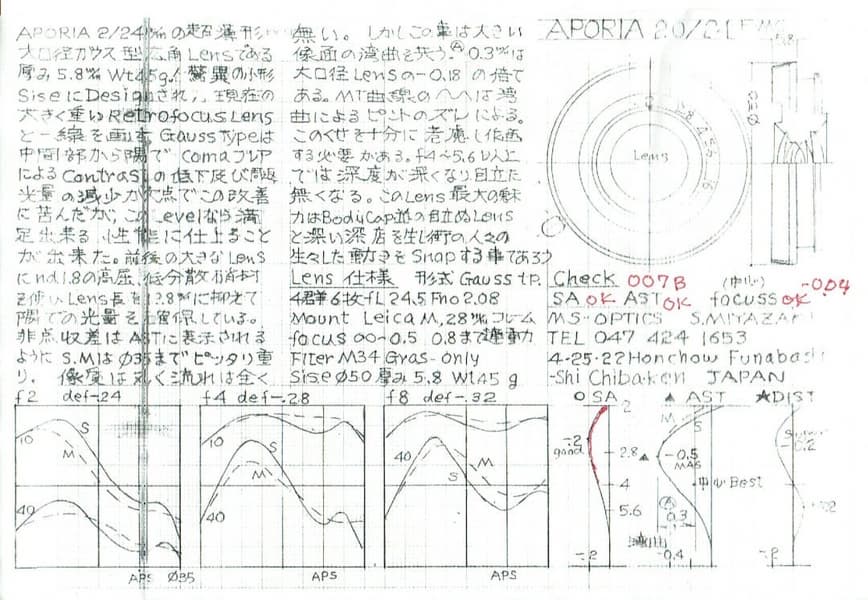 APORIA 2/24 ㎜の超薄形
大口径ガウス型広角Lensである
厚み5.8㎜ Wt45g! 驚異の小形
SiseにDesignされ, 現在の
大きく重いRetrofocus Lens
と一線を画す。Gauss typeは
中間部から隅で Comaフレア
によるContrastの低下及び周辺
光量の減少が欠点でこの改善
に苦んだが, このLevelなら満
足出来る性能に仕上ること
が出来た。前後の大きなLens
にnd1.8の高屈,低分散硝材
を使いLens長を13.8㎜に抑えて
隅での光量を確保している。
非点収差はASTに表示される
ように S.MはØ35までピッタリ重
り, 像度は丸く流れは全く
無い。しかしこの事は大きい
像面の湾曲を伴う。Ⓐ0.3㎜は
大口径Lensの-0.18 の倍で
ある。MT曲線のへへは湾
曲によるピントのズレによる。
このくせを十分に考慮し作画
する必要がある。f4~5.6以上
では深度が深くなり目立た
無くなる。このLens最大の魅
力はBodyCap並の目立ぬLens
と深い深度を生し街の人々の
生々した動きをSnapする事であろう
Lens 仕様 形式 Gauss tp.
4群6枚 fL 24.5 Fno 2.08
Mount Leica M, 28㎜フレーム
focus ∞~0.5 0.8まで連動
Filter M34 Gras-only
Sise Ø50 厚み5.8 Wt45 g
APORIA 2.0/24
Lens
Check 007B (中心) -0.04
SA OK AST OK focuss OK
MS-OPTICS S.MIYAZAKI
TEL 047 424 1653
4-25-22 Honchow Funabashi
-Shi Chiba-ken JAPAN
f2 def-24
10
S
M
40
APS Ø35
f4 def-.28
10
S
M
40
APS
f8 def-.32
10
M
S
40
APS
SA ▲ AST ★DIST
2
M S
-.2
2.8 ▲ -0.5
MAS
4 中心Best
Ⓐ
5.6 0.3
湾曲
-.2 -0.4 -.2